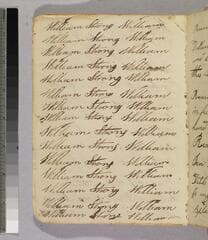 William Strong William
William Strong William
William Strong William
William Strong William
William Strong William
William Strong William
William Strong William
William Strong William
William Strong William
William Strong William
William Strong William
William Strong William
William Strong William
William Strong William
William Strong William